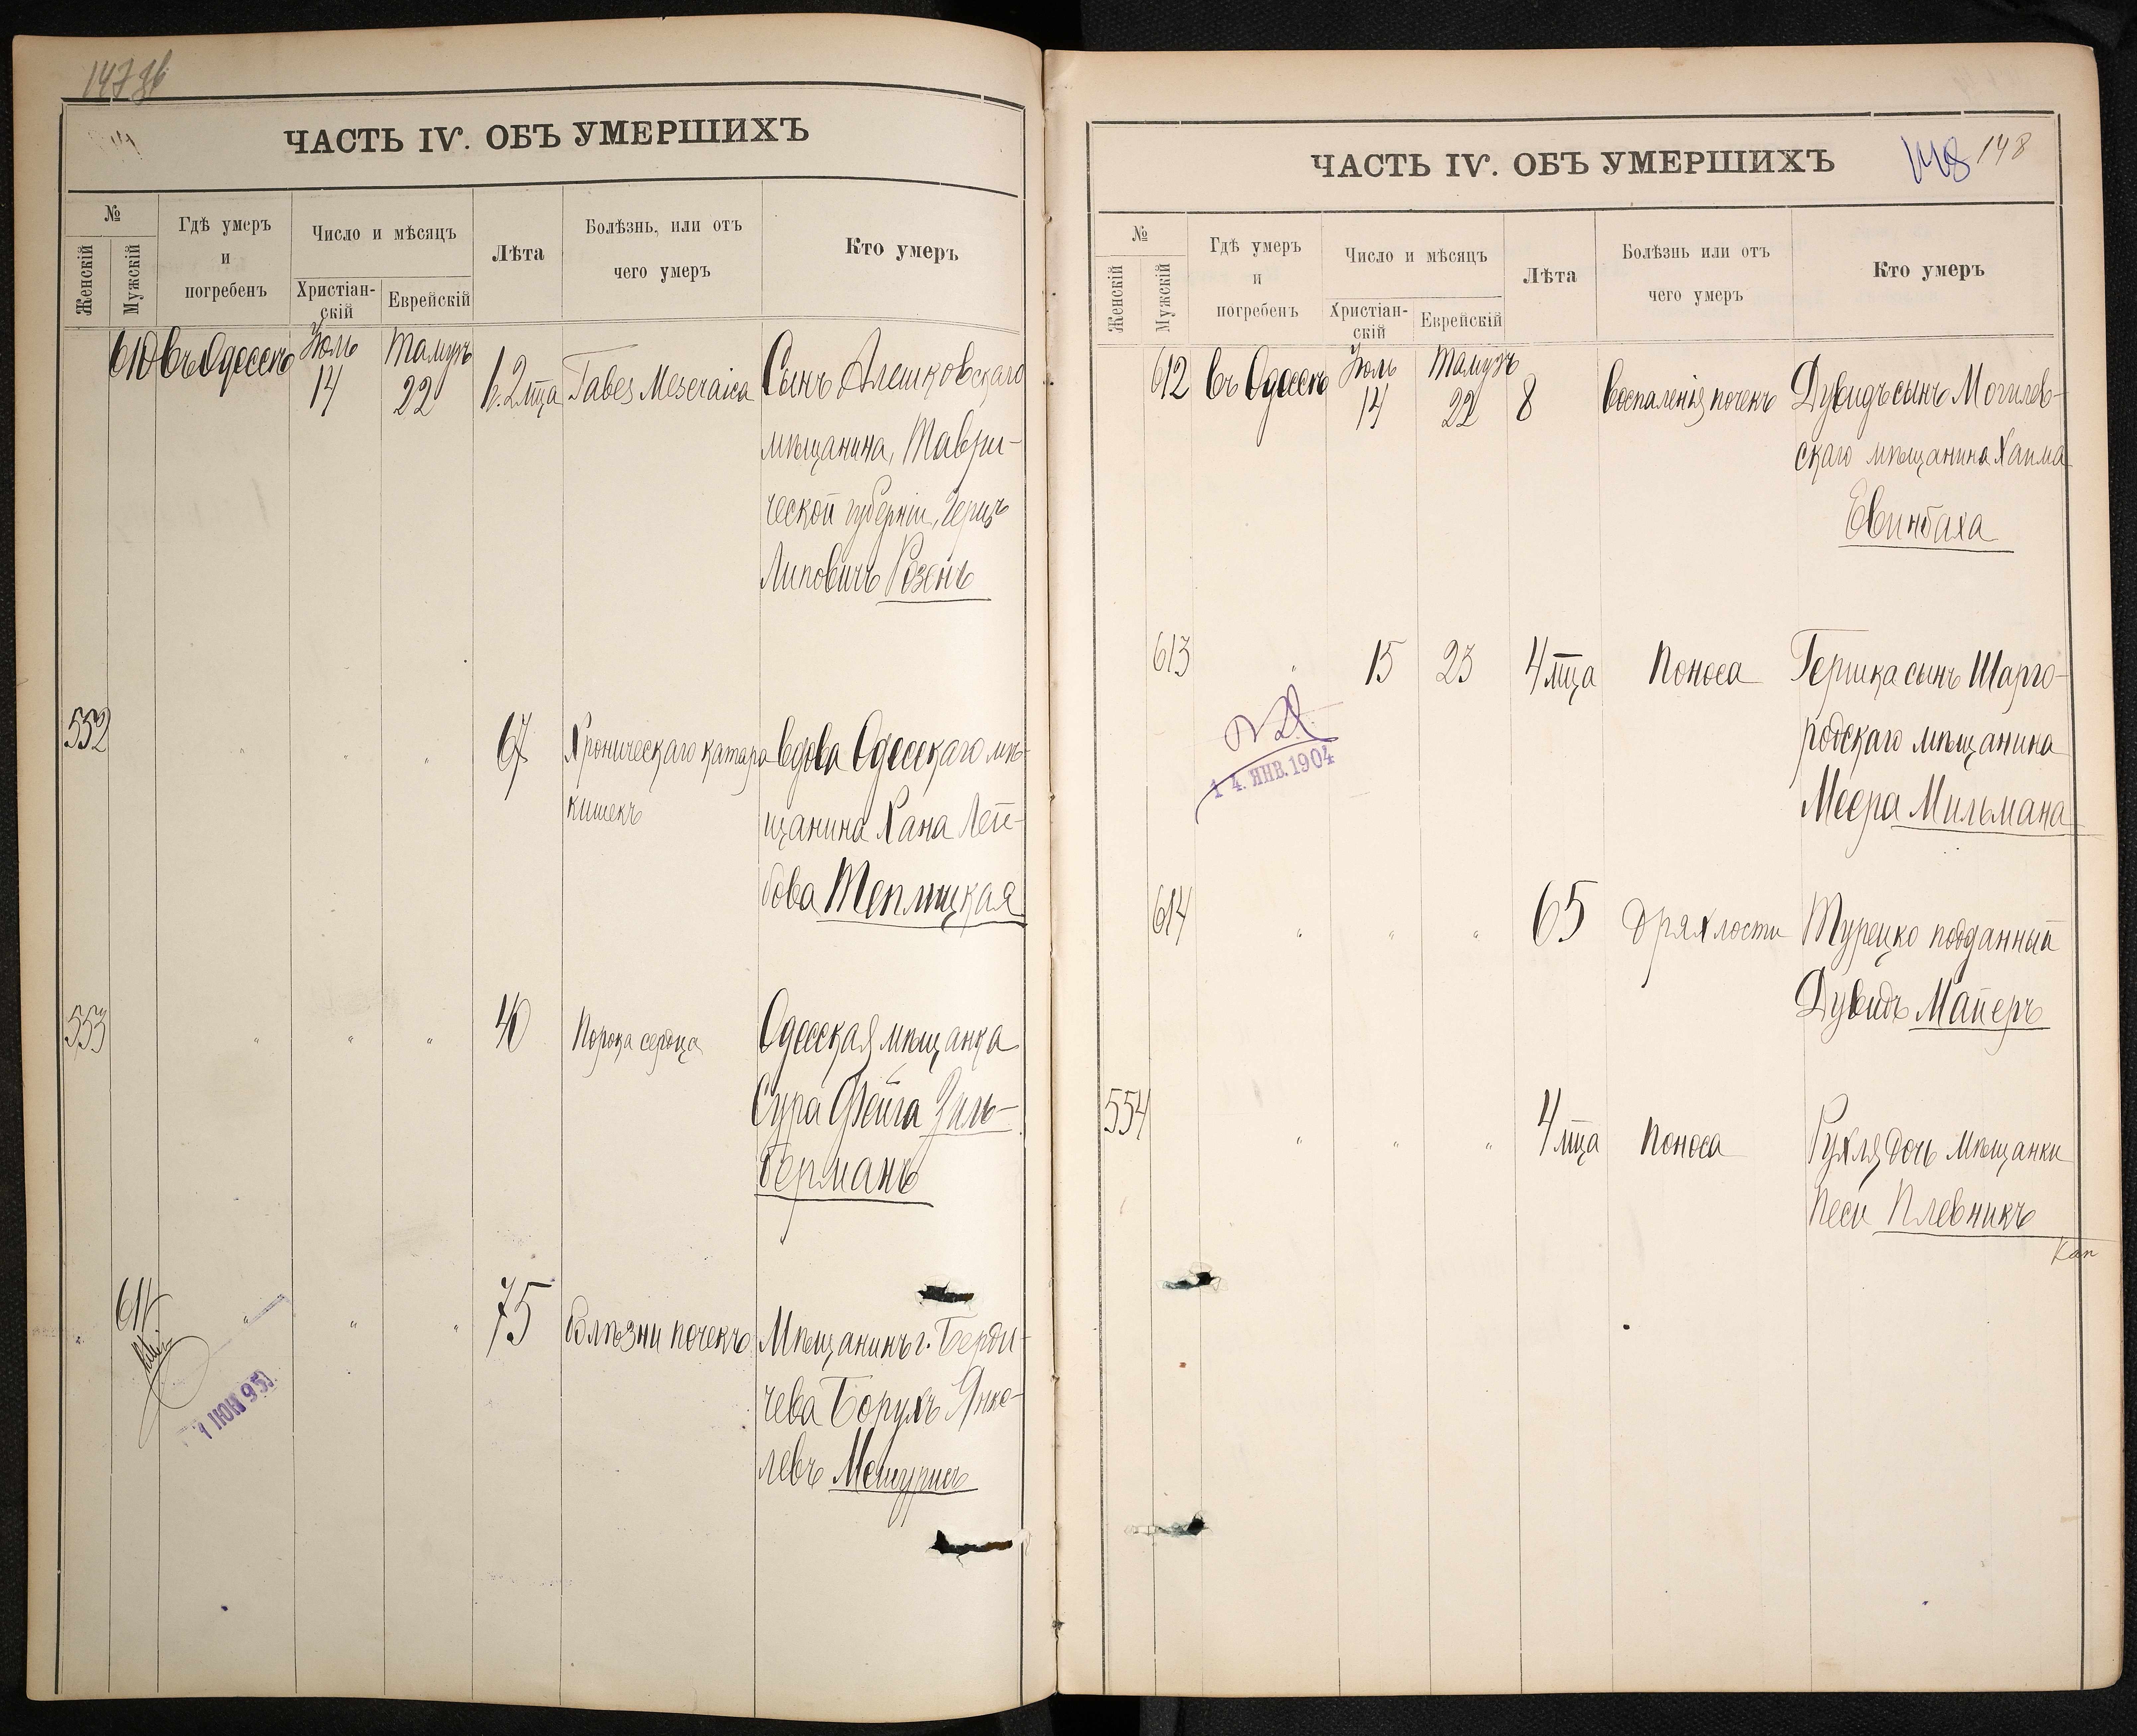 147 об
ЧАСТЬ IV. ОБЪ УМЕРШИХЪ
№
Женскій
Мужскій
Гдѣ умеръ
и
погребенъ
Число и мѣсяцъ
Христіан-
скій
Еврейскій
Лѣта
Болѣзнь, или отъ
чего умеръ
Кто умеръ
610 въ Одессѣ Іюль 14 Тамузъ 22 2 мца Tabes Meseraica Сынъ Алешковскаго
мѣщанина, Таври-
ческой губерніи, Герцъ
Липовичъ Розенъ
552 " " " 67 Хроническаго катара вдова Одесскаго мѣ-
кишекъ щанина Хана Лей-
бова Теплицкая
553 " " " 40 Порока сердца Одесская мѣщанка
Сура Фейга Зиль-
берманъ
611 " " " 75 болѣзни почекъ Мѣщанинъ г. Берди-
чева Борухъ Янке-
левъ
ЧАСТЬ IV. ОБЪ УМЕРШИХЪ
148 148
№
Женскій
Мужскій
Гдѣ умеръ
и
погребенъ
Число и мѣсяцъ
Христіан-
скій
Еврейскій
Лѣта
Болѣзнь или отъ
чего умеръ
Кто умеръ
612 въ Одессѣ Іюль 14 Тамузъ 22 8 воспаленія почекъ Дувидъ сынъ Могилев-
скаго мѣщанина Хаима
Евинбаха
613 " 15 23 4 мца Поноса Гершка сынъ Шарго-
родскаго мѣщанина
Меера Мильмана
14. ЯНВ. 1904
614 " " " 65 Дряхлости Турецко подданный
Дувидъ Майеръ
554 " " " 4 мца Поноса Рухля дочь мѣщанки
Песи Плевникъ